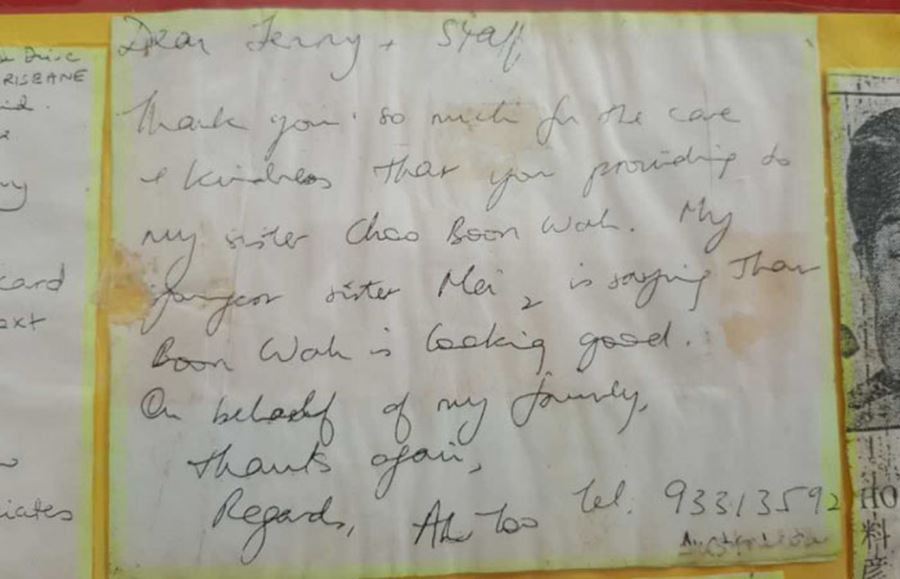 Dear Jenny + Staff
Thank you so much for the care
& kindness that you providing to
my sister Chao Boon Wah. My
youngest sister Mei 2 is saying that
Boon Wah is looking good.
On behalf of my family,
Thanks again,
Regards, Ah Too Tel: 93313592
RISBANE
card
ext
iates
HO
料
彦